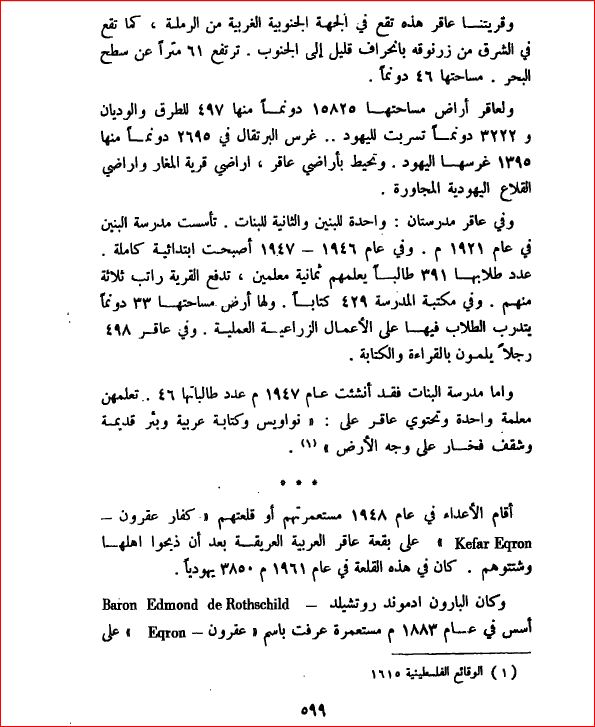 وقريتنا عاقر هذه تقع في الجهة الجنوبية الغربية من الرملة ، كما تقع
في الشرق من زرنوقه بانحراف قليل إلى الجنوب . ترتفع ٦١ متراً عن سطح
البحر . مساحتها ٤٦ دونماً .
ولعاقر أراض مساحتها ١٥٨٢٥ دونماً منها ٤٩٧ للطرق والوديان
و ٣٢٢٢ دونماً تسربت لليهود .. غرس البرتقال في ٢٦٩٥ دونماً منها
١٣٩٥ غرسها اليهود . وتحيط بأراضي عاقر ، اراضي قرية المغار واراضي
القلاع اليهودية المجاورة .
وفي عاقر مدرستان : واحدة للبنين والثانية للبنات . تأسست مدرسة البنين
في عام ١٩٢١ م . وفي عام ١٩٤٦ – ١٩٤٧ أصبحت ابتدائية كاملة .
عدد طلابها ٣٩١ طالباً يعلمهم ثمانية معلمين ، تدفع القرية راتب ثلاثة
منهم . وفي مكتبة المدرسة ٤٢٩ كتاباً . ولها أرض مساحتها ٣٣ دونماً
يتدرب الطلاب فيها على الأعمال الزراعية العملية . وفي عاقر ٤٩٨
رجلاً يلمون بالقراءة والكتابة .
واما مدرسة البنات فقد أنشئت عام ١٩٤٧ م عدد طالباتها ٤٦ . تعلمهن
معلمة واحدة وتحتوي عاقر على : « نواويس وكتابة عربية وبئر قديمة
وشقف فخار على وجه الأرض » (١) .
* * *
أقام الأعداء في عام ١٩٤٨ مستعمرتهم أو قلعتهم « كفار عقرون –
Kefar Eqron » على بقعة عاقر العربية العريقة بعد أن ذبحوا اهلها
وشتتوهم . كان في هذه القلعة في عام ١٩٦١ م ٣٨٥٠ يهودياً .
وكان البارون ادموند روتشيلد – Baron Edmond de Rothschild
أسس في عام ١٨٨٣ م مستعمرة عرفت باسم « عقرون – Eqron » على
(١) الوقائع الفلسطينية ١٦١٥
٥٩٩